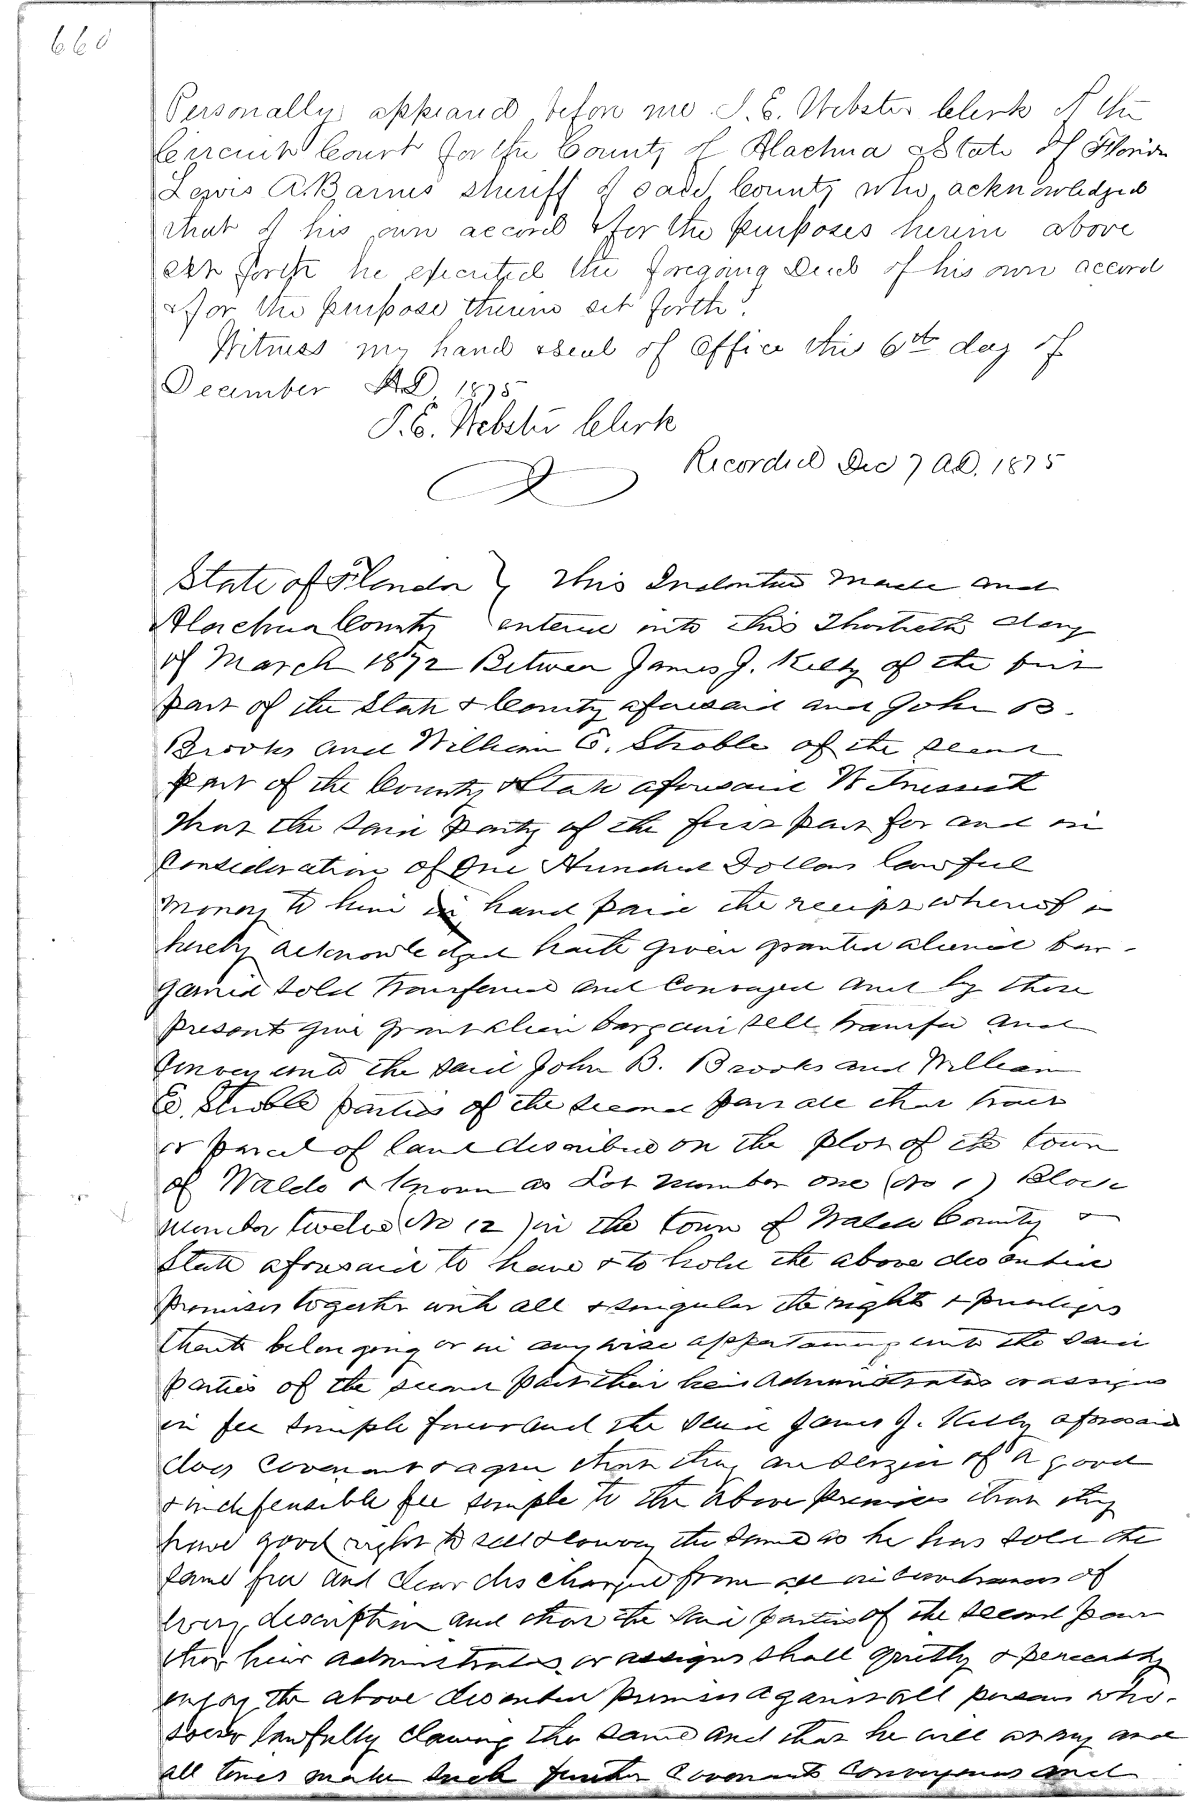 660
Personally appeared before me J. E. Webster Clerk of the
Circuit Court for the County of Alachua & State of Florida
Lewis A. Barnes sheriff of said County who acknowledged
that of his own accord & for the purposes herein above
set forth he executed the foregoing Deed of his own accord
& for the purpose therein set forth.
Witness my hand & seal of office this 6th day of
December AD. 1875
J. E. Webster Clerk
Recorded Dec 7 AD. 1875
State of Florida } This Indenture made and
Alachua County entered into this Thirtieth day
of March 1872 Between James J. Kelly of the first
part of the State & County aforesaid and John B.
Brooks and William E. Stroble of the second
part of the County & State aforesaid Witnesseth
that the said party of the first part for and in
Consideration of One Hundred Dollars lawful
money to him in hand paid the receipt whereof is
hereby acknowledged hath given granted aliened bar-
gained sold transferred and conveyed and by these
presents give grant alien bargain sell transfer and
convey unto the said John B. Brooks and William
E. Stroble parties of the second part all that tract
or parcel of land described on the plot of the town
of Waldo & known as Lot number one (No 1) Block
number twelve (No 12) in the town of Waldo County &
State aforesaid to have & to hold the above described
premises together with all & singular the rights & privileges
thereto belonging or in anywise appertaining unto the said
parties of the second part their heirs administrators or assigns
in fee simple forever and the said James J. Kelly aforesaid
does covenant & agree that they are seized of a good
& indefensible fee simple to the above premises that they
have good right to sell & convey the same as he has sold the
same free and clear discharged from all incumbrances of
every description and that the said parties of the second part
their heirs administrators or assigns shall quietly & peaceably
enjoy the above described premises against all persons who-
soever lawfully claiming the same and that he will at any and
all times make such further covenants conveyances and